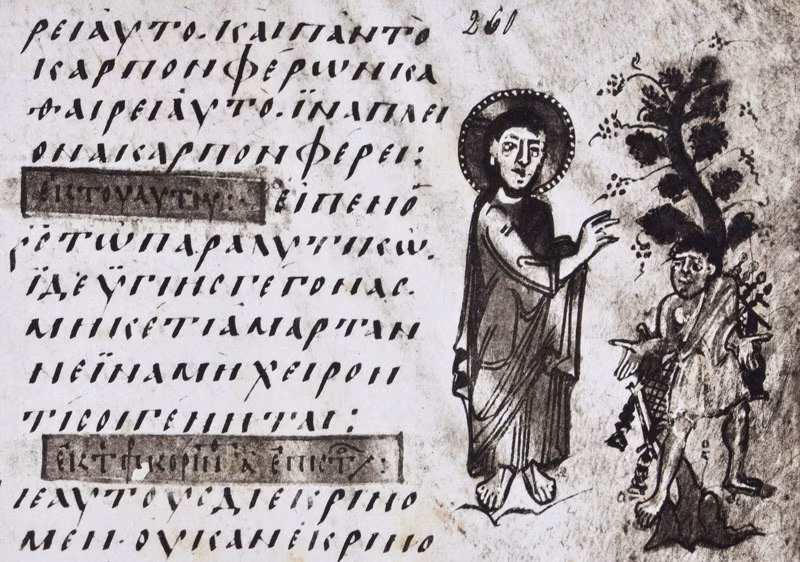 260
ρει ἀυτο· κ(αι) παν το
καρπον φέρων κα
θαιρει ἀυτο· ἵνα πλει
ονα καρπον φερει:
ἐκ του αυτου: εἰπεν ὁ
ἰς τῶ παραλυτικῶ.
ἴδε ϋγιης γεγονας·
μηκετι ἁμαρταν
νε ἵνα μη χειρον
τι σοι γενηται:
ἐκ τ κοριν ἐπιστ:
ἑαυτους διεκρινο
μεν· ουκ αν ἐκρινο